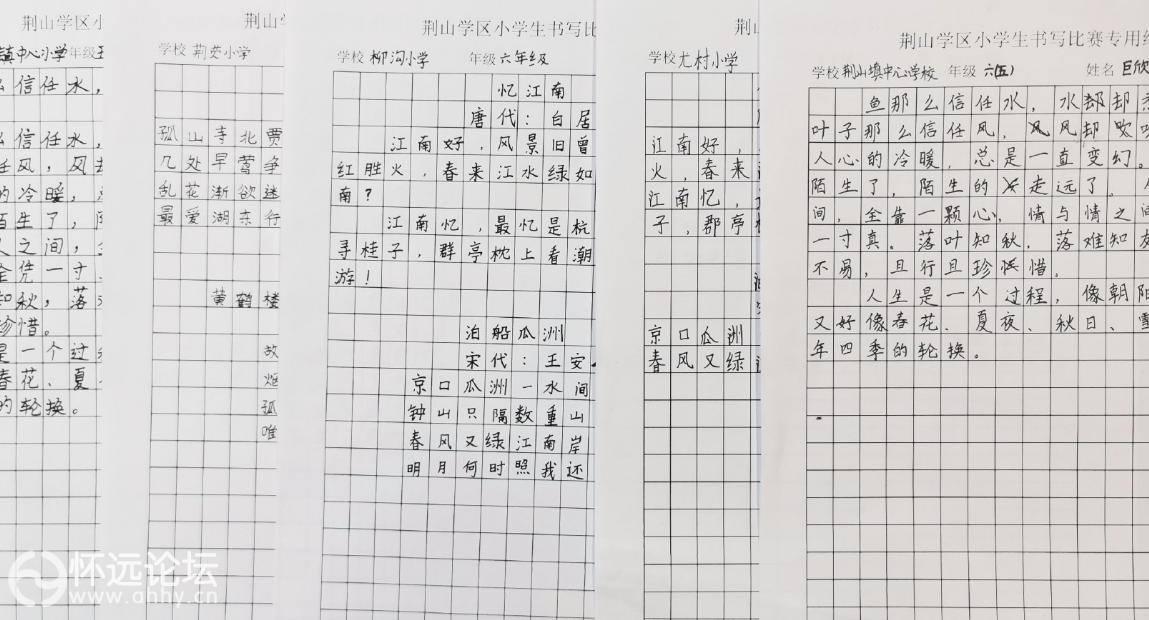 荆山学区小
镇中心小学 年级五
么信任水，
么信任水，
任风，风却
的冷暖，
陌生了，陌
人之间，全
全凭一寸
知秋，落
珍惜。
是一个过
春花、夏
的轮换。
荆山学
学校 荆芡小学
孤山寺北贾
几处早莺争
乱花渐欲迷
最爱湖东行
黄鹤楼
故
烟
孤
唯
荆山学区小学生书写比
学校 柳沟小学 年级 六年级
忆江南
唐代：白居
江南好，风景旧曾
红胜火，春来江水绿如
南？
江南忆，最忆是杭
寻桂子，群亭枕上看潮
游！
泊船瓜洲
宋代：王安
京口瓜洲一水间
钟山只隔数重山
春风又绿江南岸
明月何时照我还
荆山
学校 尤村小学
江南好，
火，春来
江南忆，
子，郡亭
京口瓜洲
春风又绿
荆山学区小学生书写比赛专用纸
学校 荆山镇中心学校 年级 六(五) 姓名 巨欣
鱼那么信任水，水却却
叶子那么信任风，风风却吹
人心的冷暖，总是一直变幻。
陌生了，陌生的走远了。人
间，全靠一颗心，情与情之间
一寸真。落叶知秋，落难知友
不易，且行且珍惜。
人生是一个过程，像朝阳
又好像春花、夏夜、秋日、雪
年四季的轮换。
怀远论坛
www.ahhy.cn